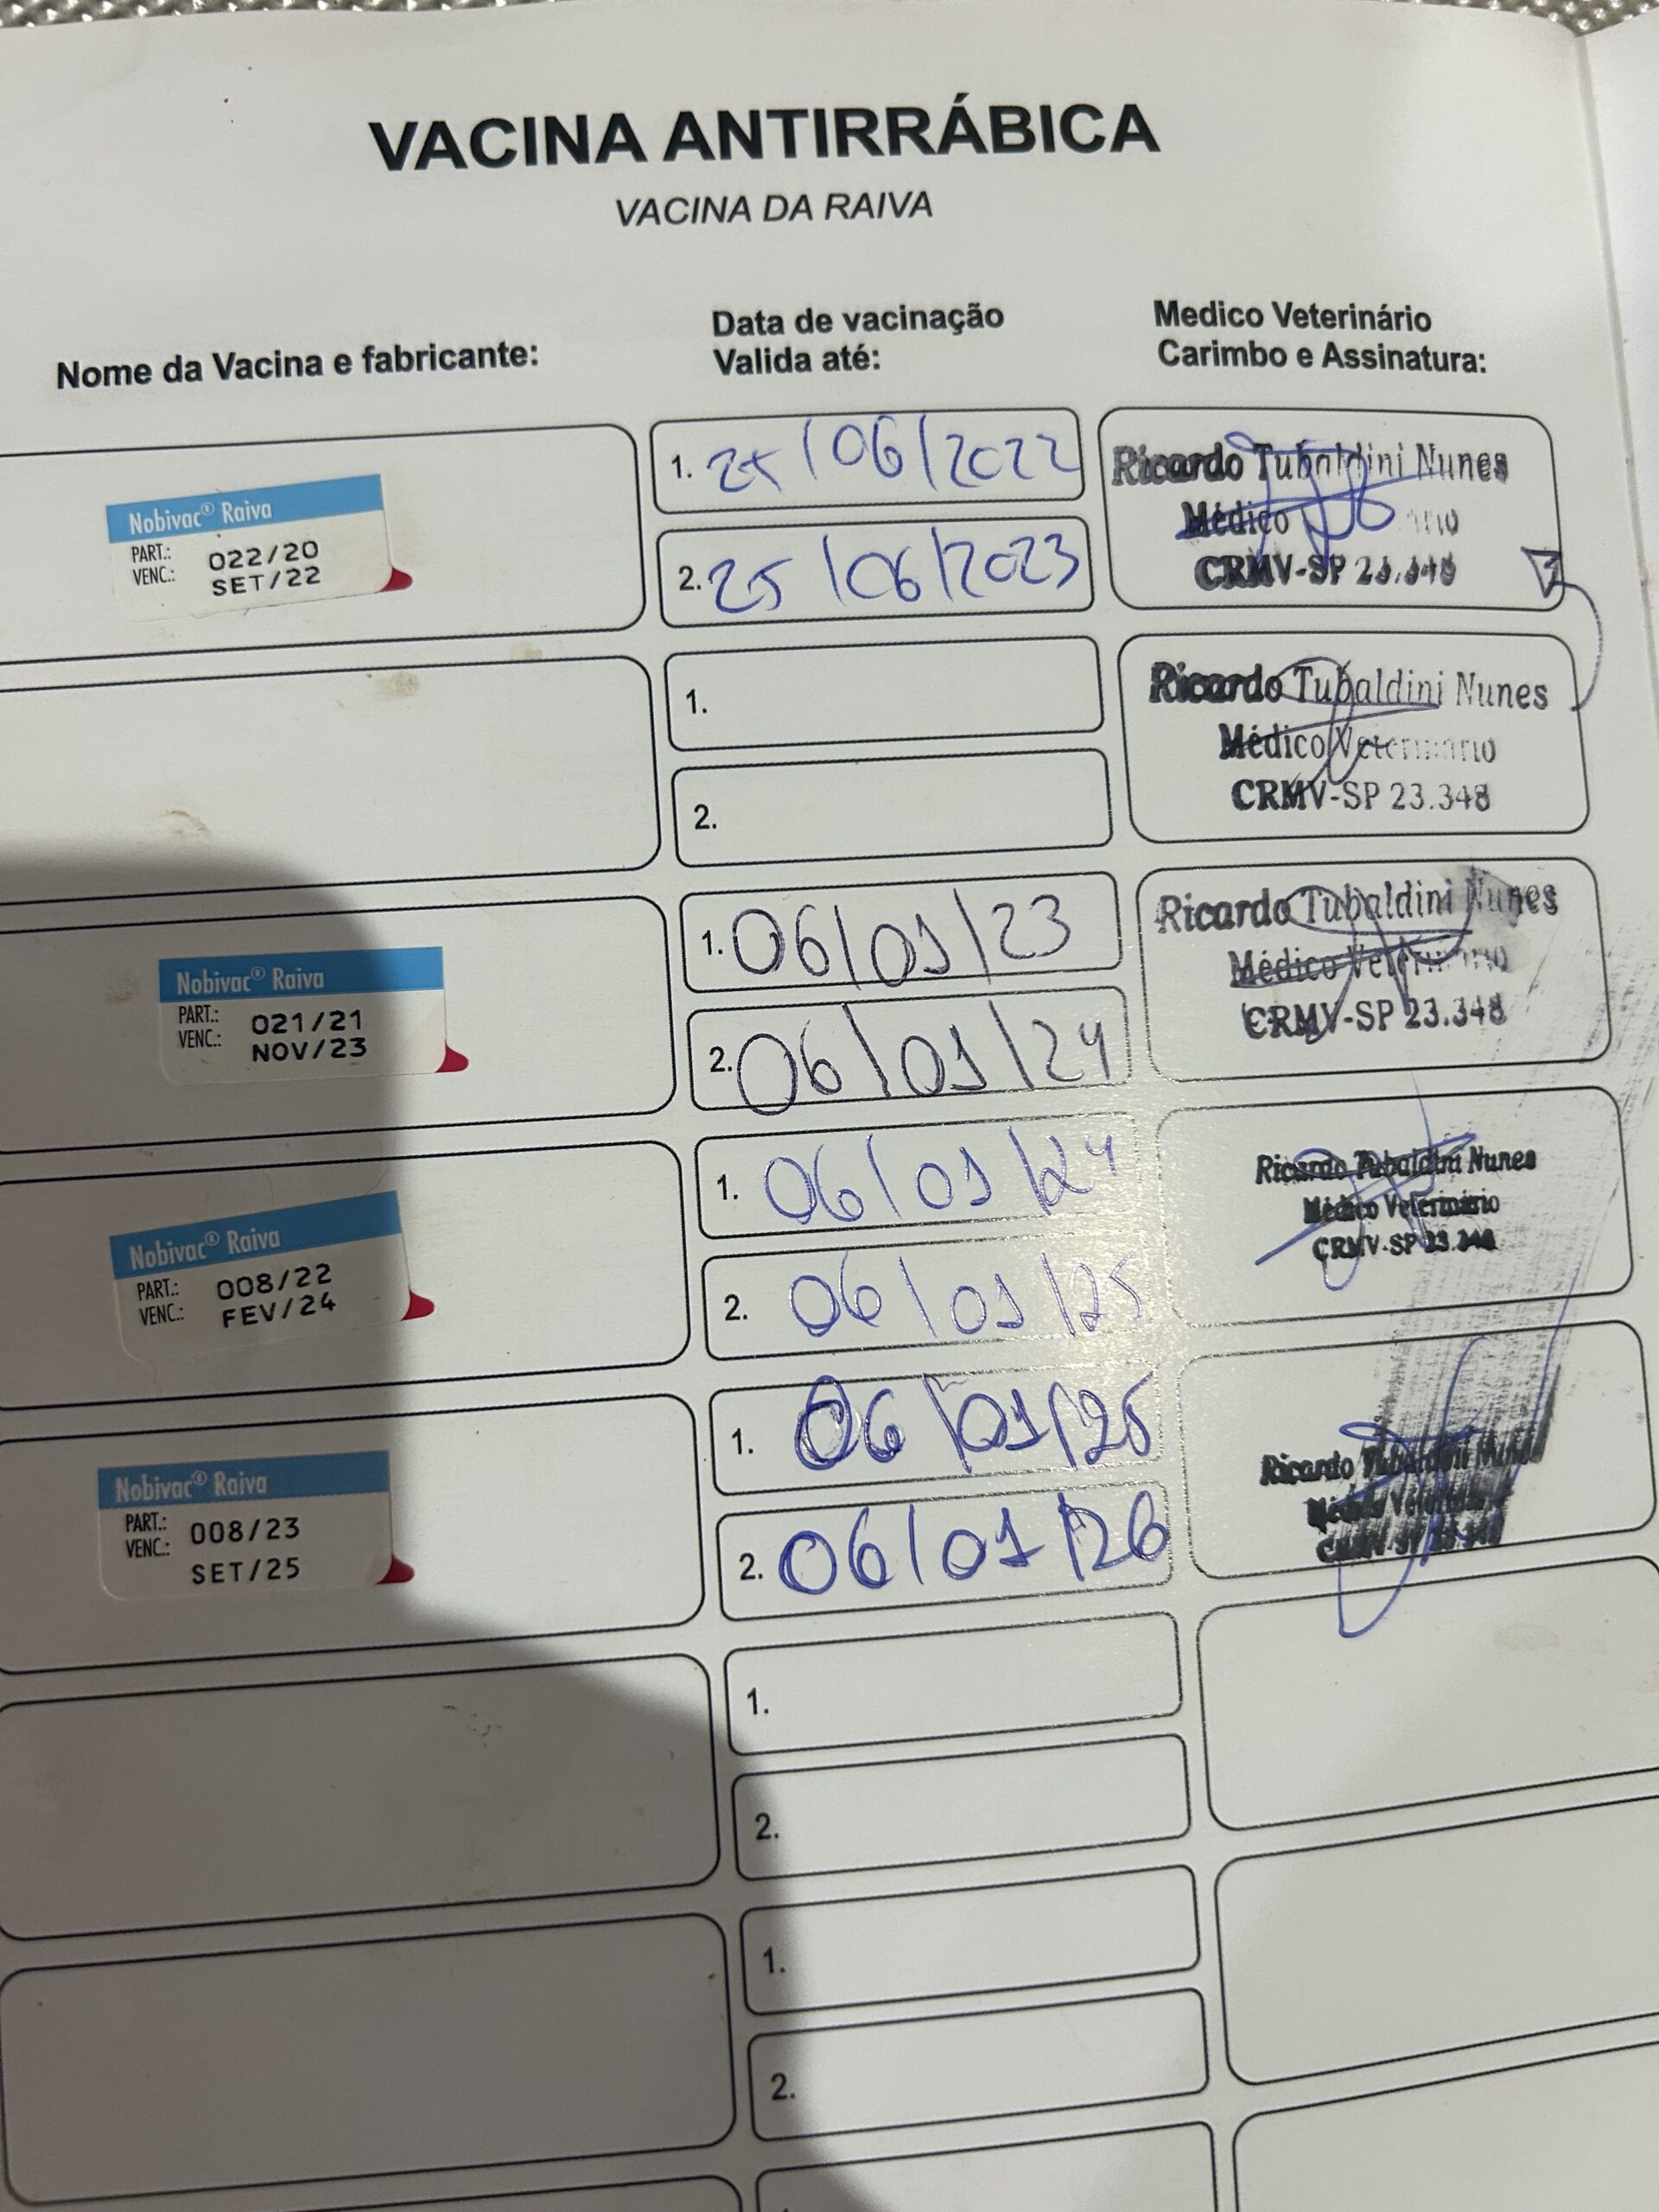 VACINA ANTIRRÁBICA
VACINA DA RAIVA
Nome da Vacina e fabricante:
Data de vacinação
Valida até:
Medico Veterinário
Carimbo e Assinatura:
Nobivac® Raiva
PART.: 022/20
VENC.: SET/22
1. 25/06/2022
2. 25/06/2023
Ricardo Tubaldini Nunes
Médico
CRMV-SP 23.348
1.
2.
Ricardo Tubaldini Nunes
Médico Veterinário
CRMV-SP 23.348
Nobivac® Raiva
PART.: 021/21
VENC.: NOV/23
1. 06/01/23
2. 06/01/24
Ricardo Tubaldini Nunes
Médico Veterinário
CRMV-SP 23.348
Nobivac® Raiva
PART.: 008/22
VENC.: FEV/24
1. 06/01/24
2. 06/01/25
Ricardo Tubaldini Nunes
Médico Veterinário
CRMV-SP 23.348
Nobivac® Raiva
PART.: 008/23
VENC.: SET/25
1. 06/01/25
2. 06/01/26
Ricardo Tubaldini
1.
2.
1.
2.